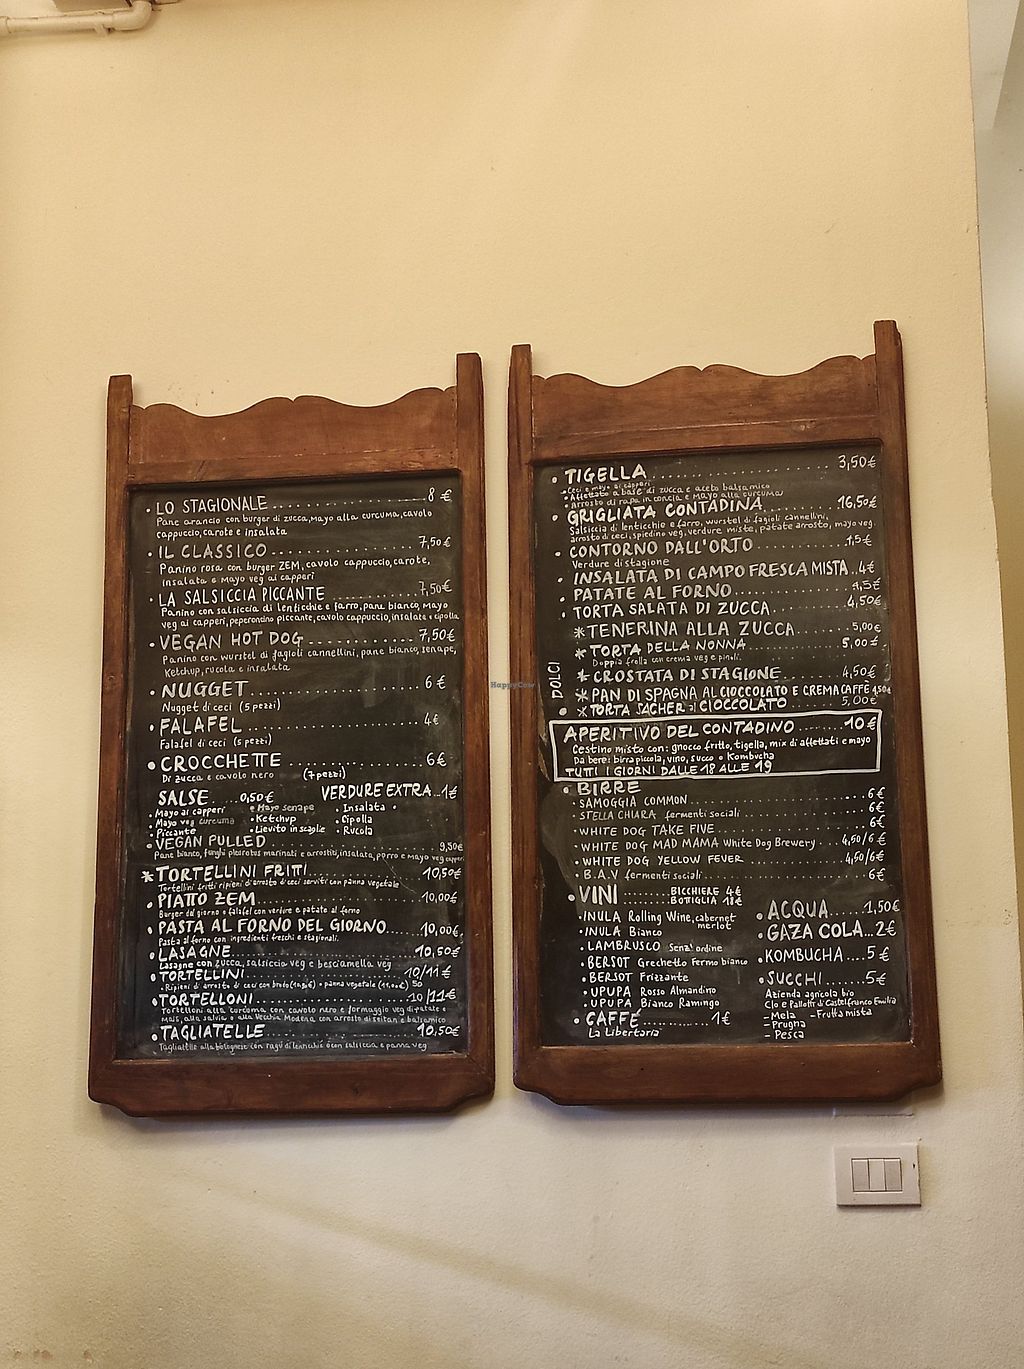 • LO STAGIONALE........................8 €
Pane arancio con burger di zucca, mayo alla curcuma, cavolo
cappuccio, carote e insalata
• IL CLASSICO........................7,50€
Panino rosa con burger ZEM, cavolo cappuccio, carote,
insalata e mayo veg ai capperi
• LA SALSICCIA PICCANTE 7,50€
Panino con salsiccia di lenticchie e farro, pane bianco, mayo
veg ai capperi, peperoncino piccante, cavolo cappuccio, insalata e cipolla
• VEGAN HOT DOG...............7,50€
Panino con wurstel di fagioli cannellini, pane bianco, senape,
Ketchup, rucola e insalata
• NUGGET........................6 €
Nugget di ceci (5 pezzi)
• FALAFEL........................4€
Falafel di ceci (5 pezzi)
• CROCCHETTE..................6€
Di zucca e cavolo nero (7 pezzi)
SALSE......0,50€ VERDURE EXTRA..1€
• Mayo ai capperi • Mayo senape • Insalata
• Mayo veg curcuma • Ketchup • Cipolla
• Piccante • Lievito in scaglie • Rucola
• VEGAN PULLED 9,50€
Pane bianco, funghi pleurotus marinati e arrostiti, insalata, porro e mayo veg capperi
* TORTELLINI FRITTI.........10,50€
Tortellini fritti ripieni d'arrosto di ceci serviti con panna vegetale
• PIATTO ZEM........................10,00€
Burger del giorno o falafel con verdure e patate al forno
• PASTA AL FORNO DEL GIORNO......10,00€
Pasta al forno con ingredienti freschi e stagionali.
• LASAGNE........................10,50€
Lasagne con zucca, salsiccia veg e besciamella veg
• TORTELLINI........................10/11 €
• Ripieni di arrosto di ceci con brodo • panna vegetale
• TORTELLONI........................10/11€
Tortelloni alla curcuma con cavolo nero e formaggio veg di patate e
mais, alla salvia o alla Vecchia Modena con arrosto di seitan e balsamico
• TAGLIATELLE........................10,50€
Tagliatelle alla bolognese con ragù di lenticchie o con salsiccia e panna veg
• TIGELLA........................3,50€
• Ceci e mayo ai capperi
• Affettato a base di zucca e aceto balsamico
• Arrosto di rapa in concia e mayo alla curcuma
• GRIGLIATA CONTADINA.........16,50€
Salsiccia di lenticchie e farro, wurstel di fagioli cannellini,
arrosto di ceci, spiedino veg, verdure miste, patate arrosto, mayo veg.
• CONTORNO DALL'ORTO.........4,5€
Verdure di stagione
• INSALATA DI CAMPO FRESCA MISTA..4€
• PATATE AL FORNO.........4,5€
• TORTA SALATA DI ZUCCA......4,50€
DOLCI
* TENERINA ALLA ZUCCA.........5,00€
* TORTA DELLA NONNA.........5,00€
Doppia frolla con crema veg e pinoli.
* CROSTATA DI STAGIONE.........4,50€
* PAN DI SPAGNA AL CIOCCOLATO E CREMA CAFFÈ 4,50€
• * TORTA SACHER al CIOCCOLATO......5,00€
APERITIVO DEL CONTADINO.........10€
Cestino misto con: gnocco fritto, tigella, mix di affettati e mayo
Da bere: birra piccola, vino, succo o Kombucha
TUTTI I GIORNI DALLE 18 ALLE 19
• BIRRE
• SAMOGGIA COMMON......6 €
• STELLA CHIARA fermenti sociali......6€
• WHITE DOG TAKE FIVE......6€
• WHITE DOG MAD MAMA White Dog Brewery......4,50/6 €
• WHITE DOG YELLOW FEVER......4,50/6€
• B.A.V fermenti sociali......6€
• VINI BICCHIERE 4€
BOTIGLIA 18€
• INULA Rolling Wine, cabernet
merlot
• INULA Bianco
• LAMBRUSCO Senz'ordine
• BERSOT Grechetto Fermo bianco
• BERSOT Frizzante
• UPUPA Rosso Almandino
• UPUPA Bianco Ramingo
• CAFFÈ............1€
La Libertaria
• ACQUA......1,50€
• GAZA COLA...2€
• KOMBUCHA....5 €
• SUCCHI........5€
Azienda agricola bio
Clo e Pallotti di Castelfranco Emilia
- Mela - Frutta mista
- Prugna
- Pesca
HappyCow